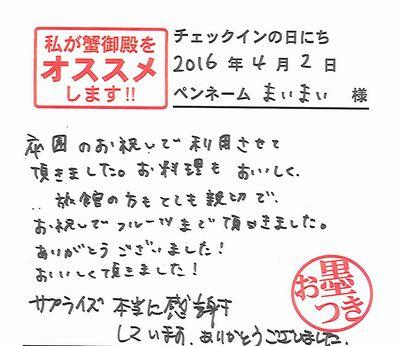 私が蟹御殿を
オススメ
します!!
チェックインの日にち
2016 年 4 月 2 日
ペンネーム まぃまぃ 様
のお祝いで利用させて
頂きました。お料理も おいしく、
旅館の方もとても親切で、
お祝いでフルーツまで頂きました。
ありがとうございました!
おいしく頂きました!
サプライズ 本当に感謝
しています。ありがとうございました。
お墨つき